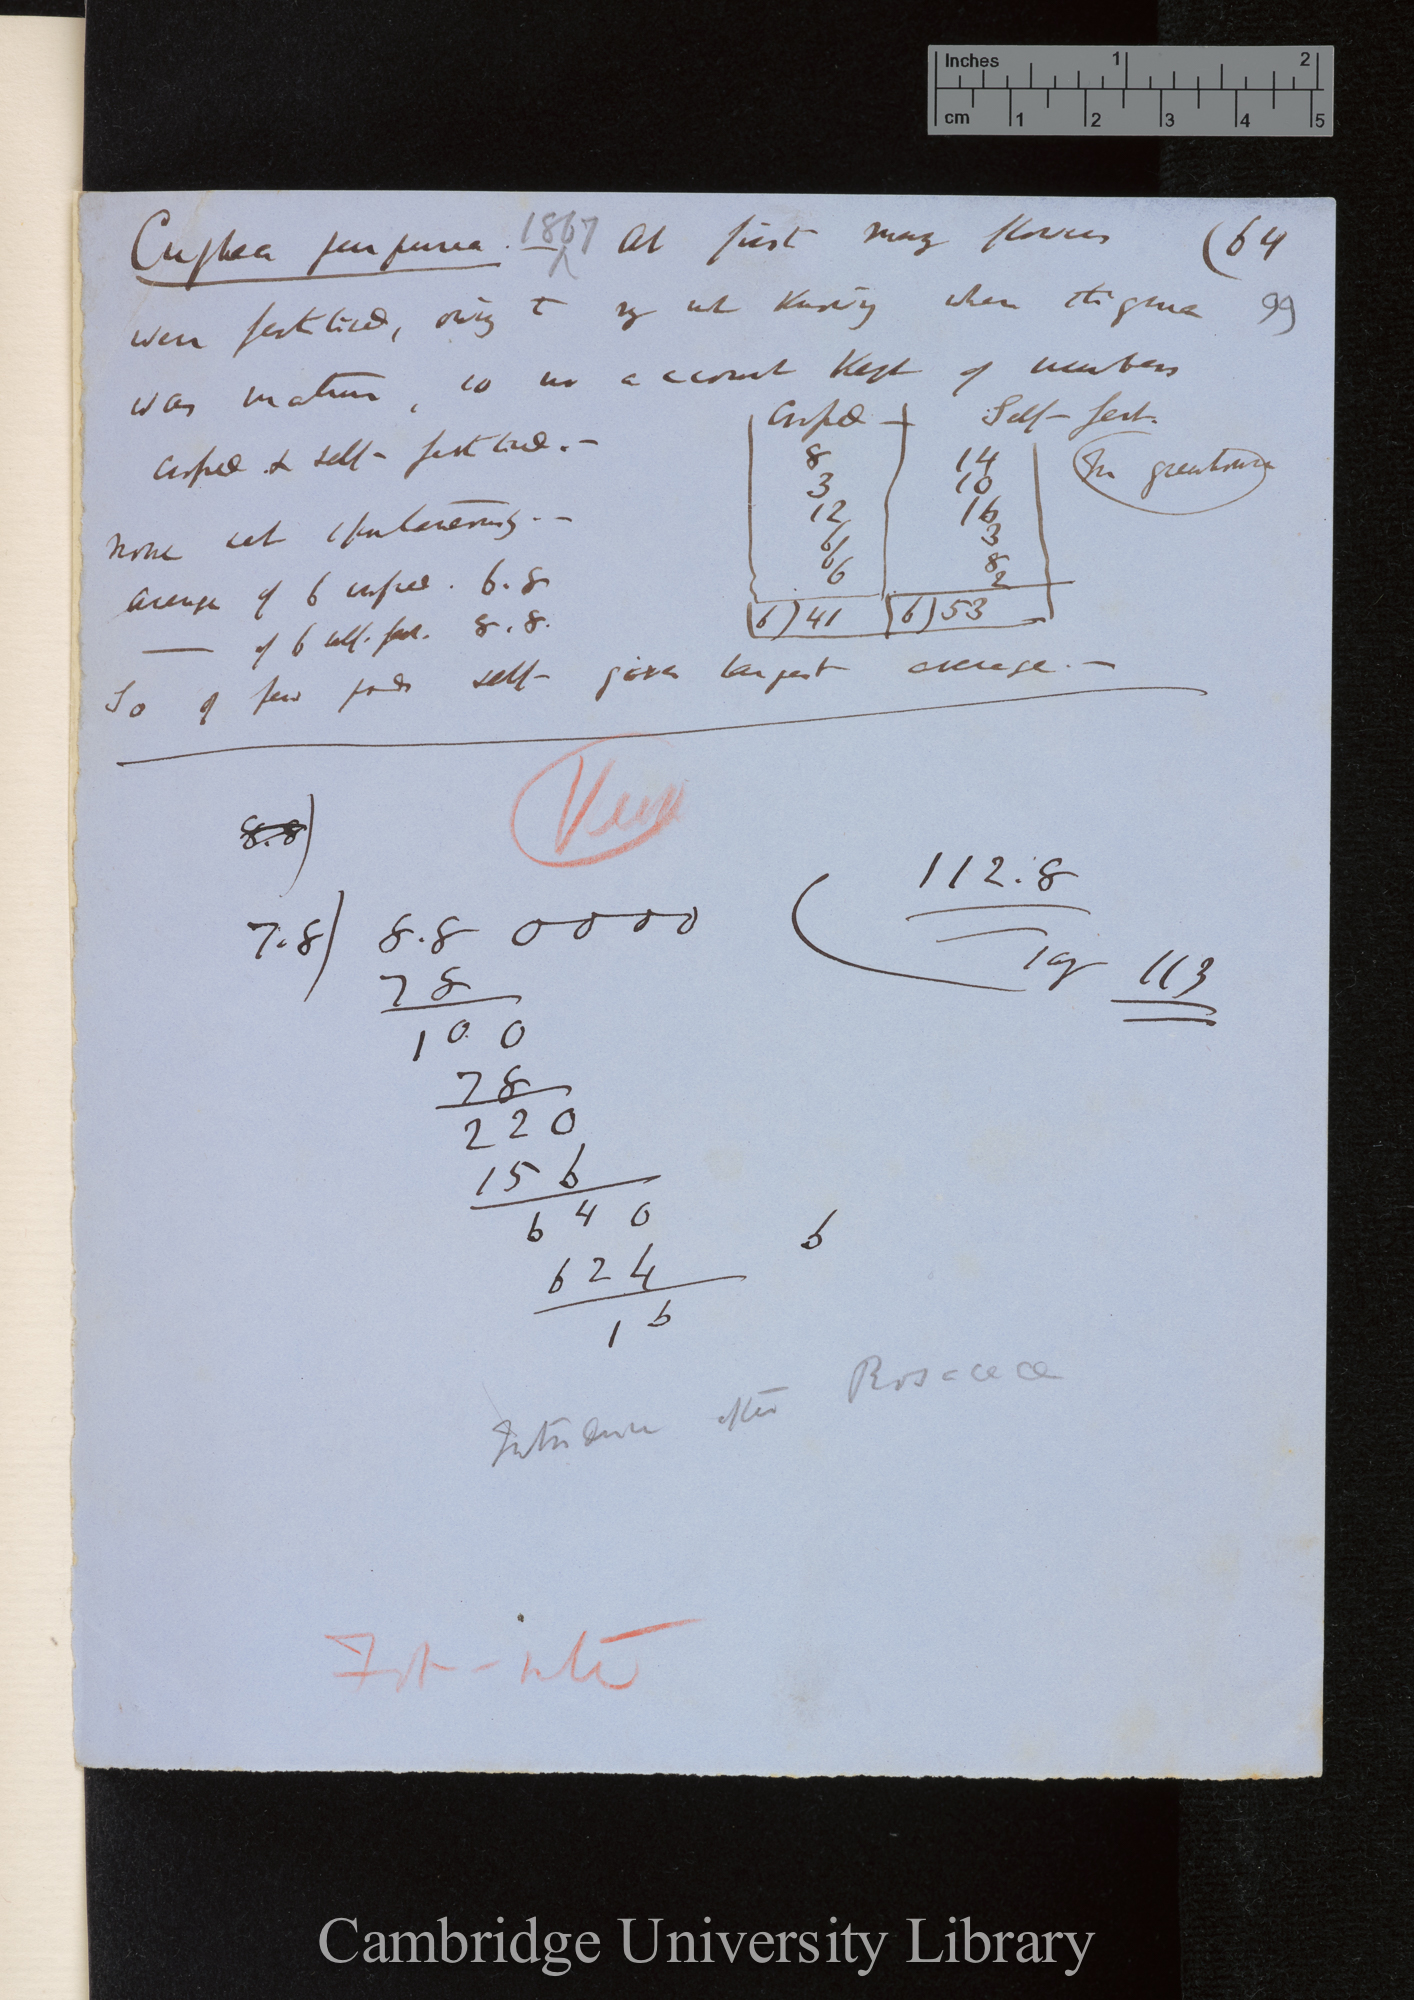 Inches 1 2
cm 1 2 3 4 5
Cuphea purpurea. 1867 At first many flowers (64
were fertilised, owing to my not knowing when stigma 99
was mature, so no account kept of numbers
crossed & self-fertilised.—
Crossed Self-fert.
8 14
3 10
12 16
6 3
6 8
6 2
6)41 6)53
(In greenhouse
None set spontaneously.—
average of 6 crossed. 6.8
— of 6 self-fert. 8.8.
So of few pods self- gives largest average.—
8.8)
7.8) 8.8 0000
78
100
78
220
156
640
624
16
6
112.8
say 113
Introduce after Rosaceae